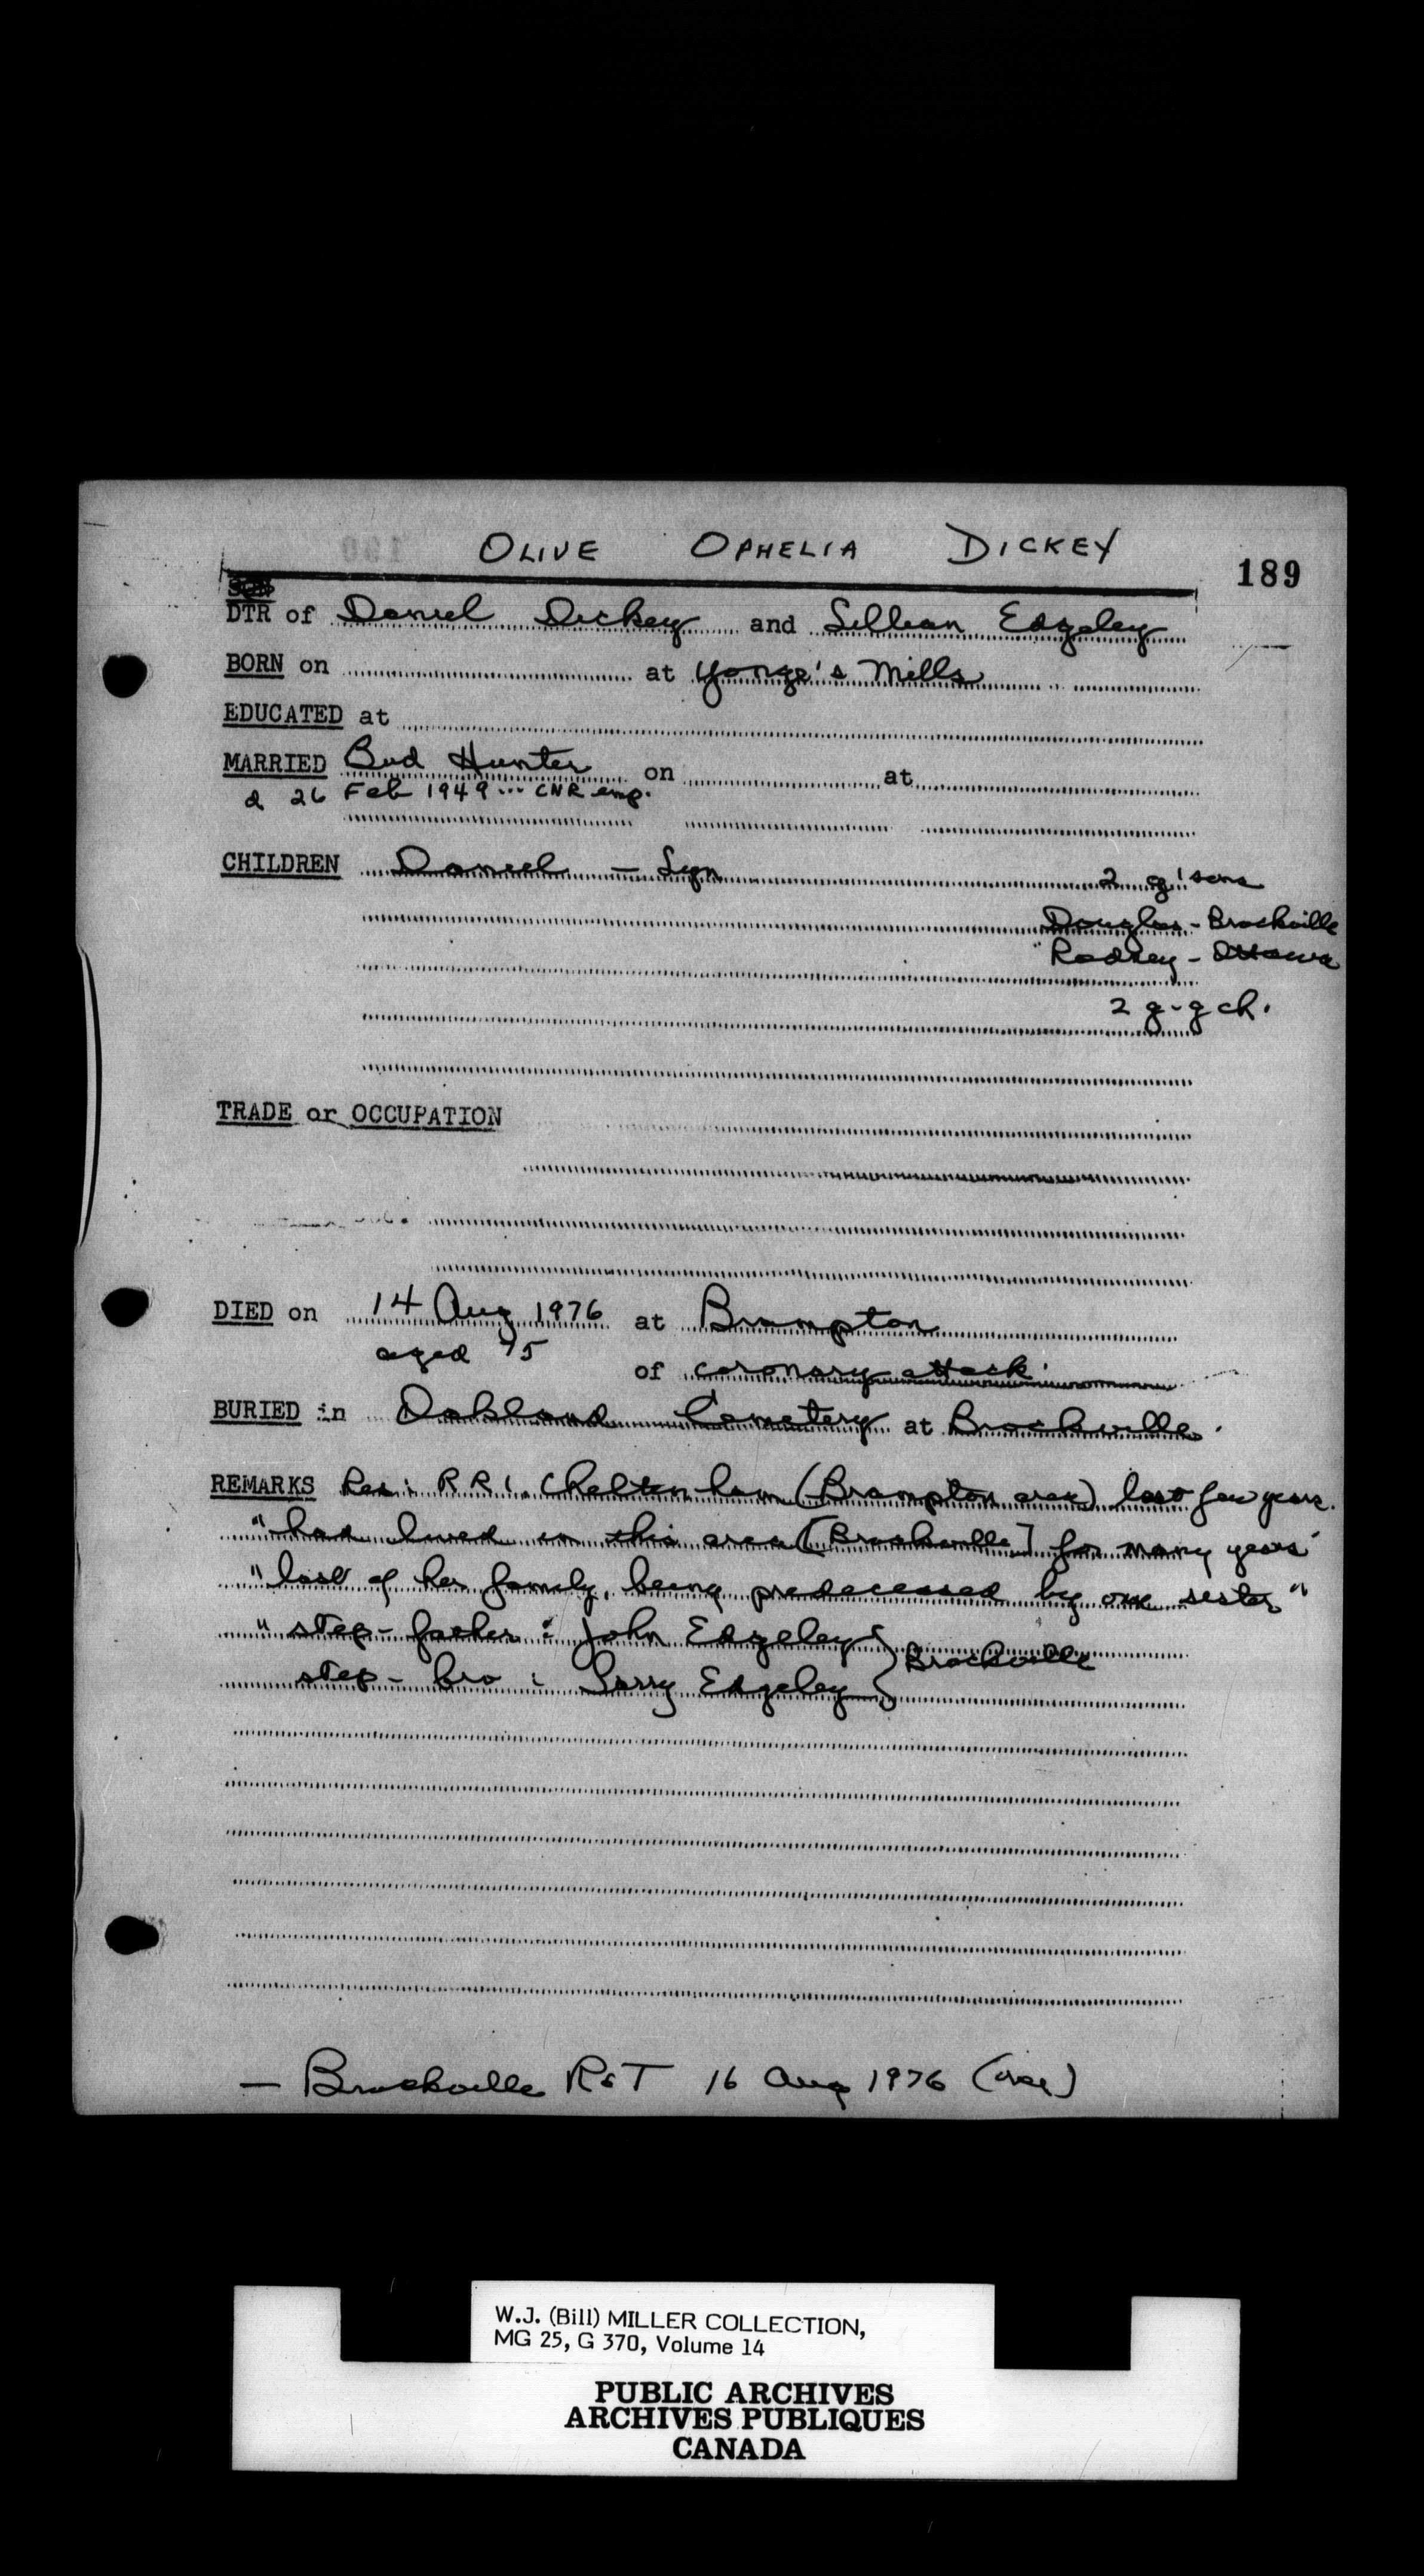 OLIVE OPHELIA DICKEY
189
SON
DTR of Daniel Dickey and Lillian Edgeley
BORN on at Yonge's Mills
EDUCATED at
MARRIED Bud Hunter on at
d 26 Feb 1949 ... CNR emp.
CHILDREN Daniel - Lyn 2 g'sons
Douglas - Brockville
Rodney - Ottawa
2 g-g ch.
TRADE or OCCUPATION
DIED on 14 Aug 1976 at Brampton
aged 75 of coronary attack.
BURIED in Oakland Cemetery at Brockville.
REMARKS Res: RR1. Cheltenham (Brampton area) last few years.
"had lived in this area [Brockville] for many years"
"last of her family, being predeceased by one sister"
" step-father : John Edgeley } Brockville
step-bro : Larry Edgeley }
- Brockville R&T 16 Aug 1976
W.J. (Bill) MILLER COLLECTION,
MG 25, G 370, Volume 14
PUBLIC ARCHIVES
ARCHIVES PUBLIQUES
CANADA